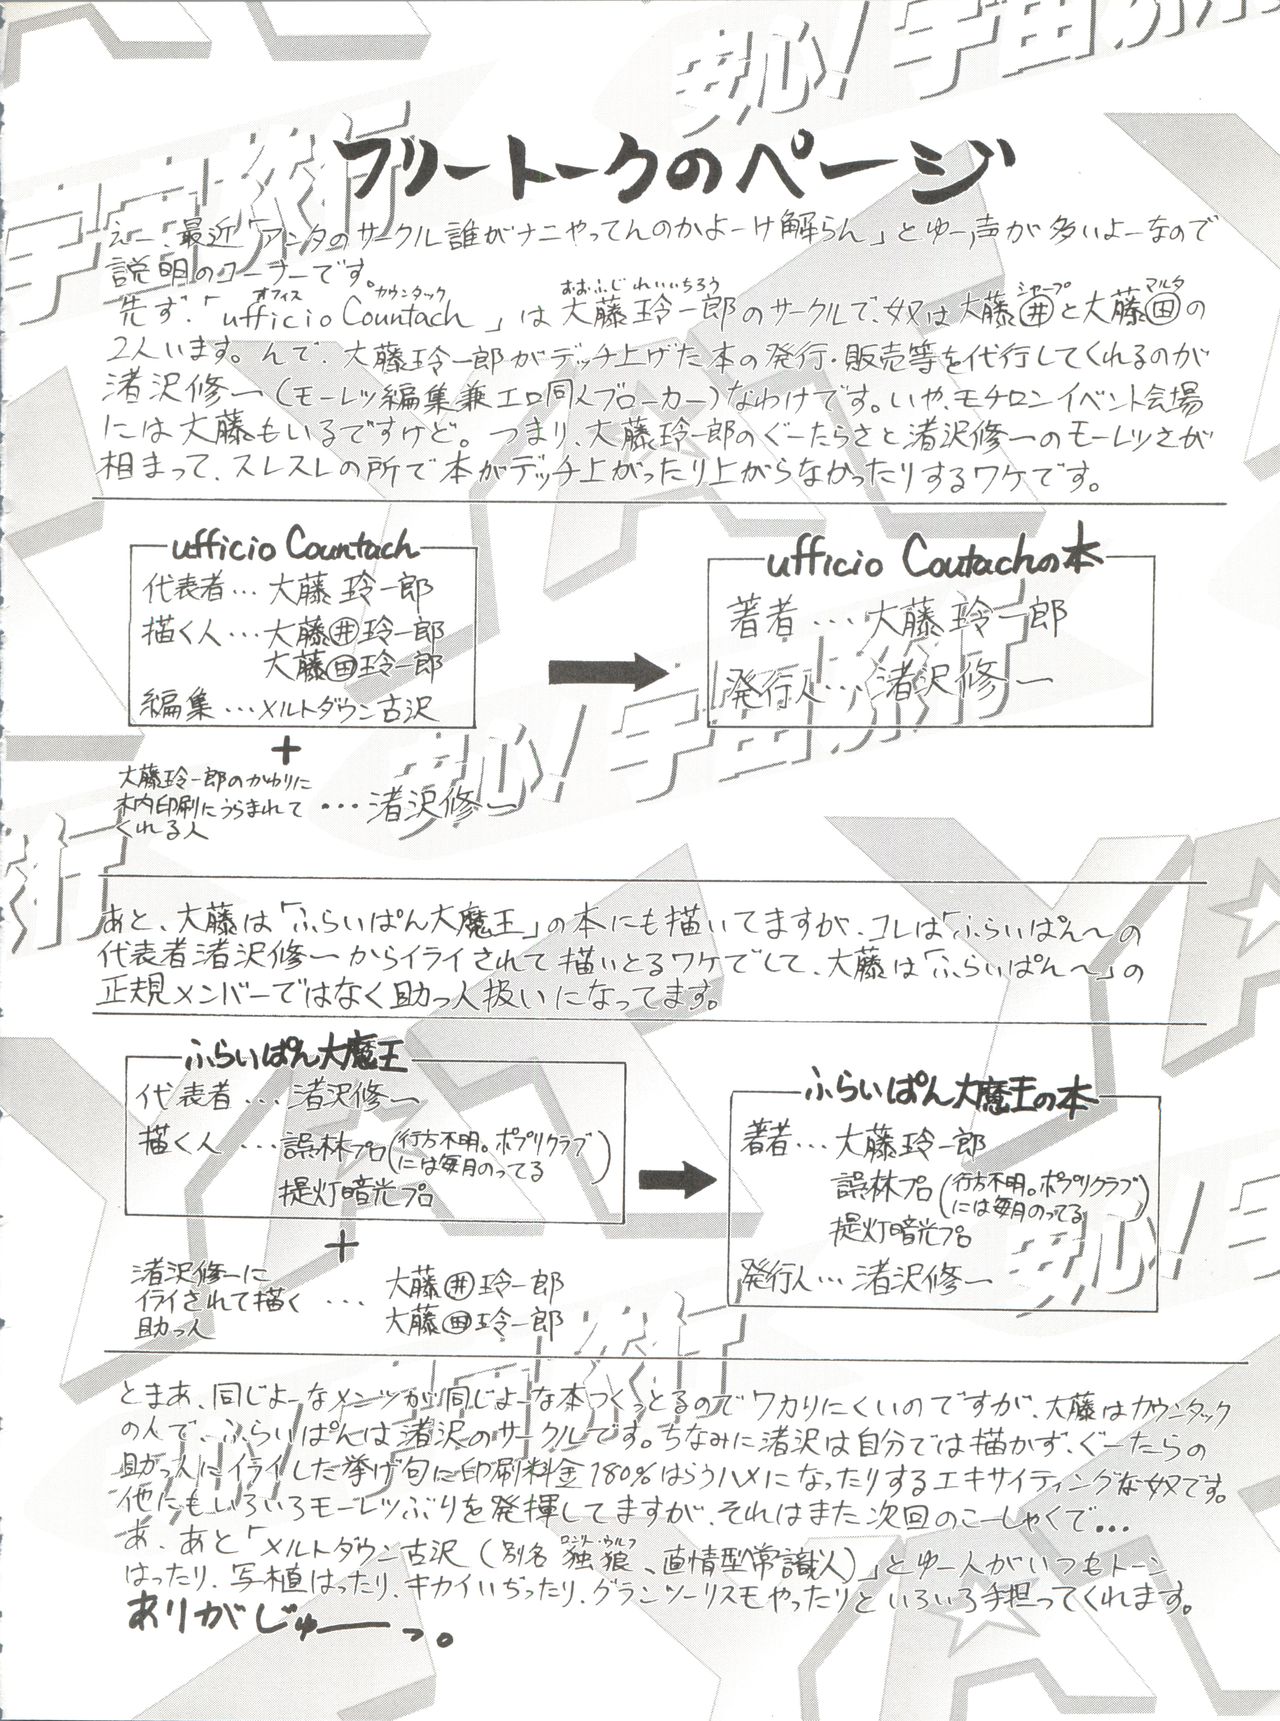 フリートークのページ
えー、最近「アンタのサークル誰がナニやってんのかよーけ解らん」とゆー声が多いよーなので
説明のコーナーです。
先ず、「ufficio Countach」は大藤玲一郎のサークルで、奴は大藤㊉と大藤㊉の
オフィス カウンタック おおふじ れいいちろう シャープ マルタ
2人います。んで、大藤玲一郎がデッチ上げた本の発行・販売等を代行してくれるのが
渚沢修一(モーレツ編集兼エロ同人ブローカー)なわけです。いや、モチロンイベント会場
には大藤もいるですけど。つまり、大藤玲一郎のぐーたらさと渚沢修一のモーレツさが
相まって、スレスレの所で本がデッチ上がったり上がらなかったりするワケです。
ufficio Countach
代表者…大藤玲一郎
描く人…大藤井玲一郎
大藤田玲一郎
編集…メルトダウン古沢
+
大藤玲一郎のかゆりに
木内印刷にうらまれて
くれる人
…渚沢修一
ufficio Coutachの本
著者…大藤玲一郎
発行人…渚沢修一
あと、大藤は「ふらいぱん大魔王」の本にも描いてますが、コレは「ふらいぱん〜の
代表者渚沢修一からイライされて描いとるワケでして、大藤は「ふらいぱん〜」の
正規メンバーではなく助っ人扱いになってます。
ふらいぱん大魔王
代表者…渚沢修一
描く人…誤林プロ(行方不明。ポプリクラブ
には毎月のってる)
提灯暗光プロ
+
渚沢修一に
イライされて描く…
助っ人
大藤井玲一郎
大藤田玲一郎
ふらいぱん大魔王の本
著者…大藤玲一郎
誤林プロ(行方不明。ポプリクラブ
には毎月のってる)
提灯暗光プロ
発行人…渚沢修一
とまあ、同じよーなメンツが同じよーな本つくっとるのでワカりにくいのですが、大藤はカウンタック
の人で、ふらいぱんは渚沢のサークルです。ちなみに渚沢は自分では描かず、ぐーたらの
助っ人にイライした挙げ句に印刷料金180%はらうハメになったりするエキサイティングな奴です。
他にもいろいろモーレツぶりを発揮してますが、それはまた次回のこーしゃくで…
あ、あと「メルトダウン古沢(別名独狼、直情型常識人)」とゆー人がいつもトーン
ロンリー・ウルフ
はったり、写植はったり、キカイいぢったり、グランツーリスモやったりといろいろ手担ってくれます。
ありがじゅーっ。
安心!宇宙旅行
YAT